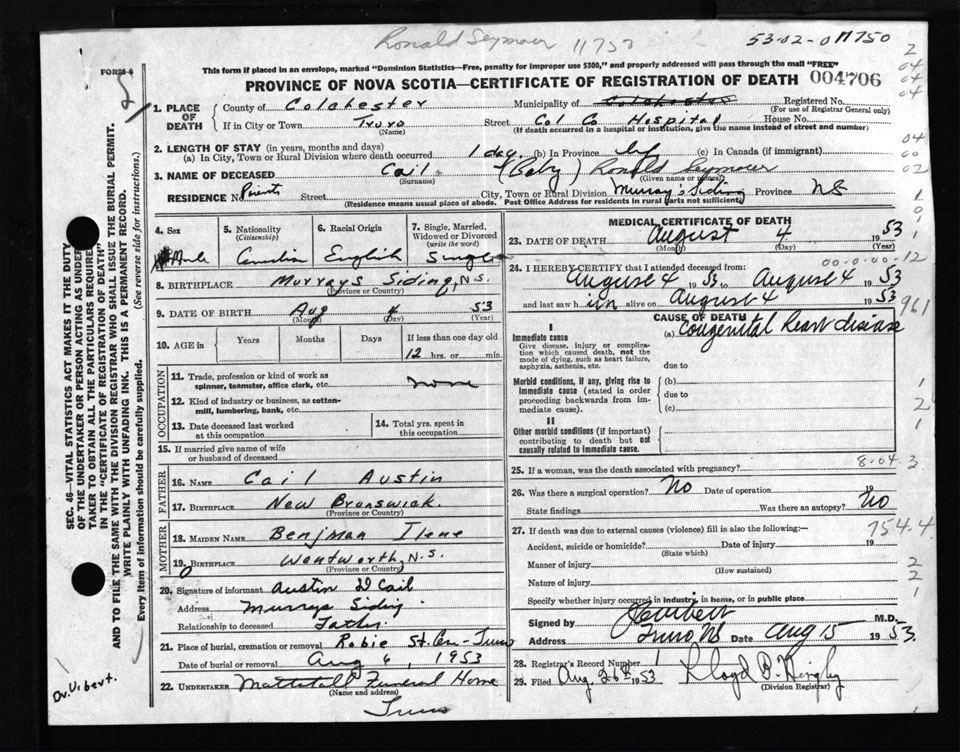 Ronald Seymour 11750
53-02-011750
This form if placed in an envelope, marked "Dominion Statistics—Free, penalty for improper use $300," and properly addressed will pass through the mail "FREE"
FORM 6
PROVINCE OF NOVA SCOTIA—CERTIFICATE OF REGISTRATION OF DEATH 004706
1. PLACE OF DEATH
County of Colchester Municipality of Colchester Registered No.
(For use of Registrar General only)
If in City or Town Truro Street Col Co Hospital House No.
(Name) (If death occurred in a hospital or institution, give the name instead of street and number)
2. LENGTH OF STAY (in years, months and days)
(a) In City, Town or Rural Division where death occurred 1 day (b) In Province (c) In Canada (if immigrant)
3. NAME OF DECEASED Cail (Baby) Ronald Seymour
(Surname) (Given name or names)
RESIDENCE No. Street City, Town or Rural Division Murray's Siding Province NS
(Residence means usual place of abode. Post Office Address for residents in rural parts not sufficient)
4. Sex
Male
5. Nationality
(Citizenship)
Canadian
6. Racial Origin
English
7. Single, Married, Widowed or Divorced
(write the word)
Single
8. BIRTHPLACE Murrays Siding, N.S.
(Province or Country)
9. DATE OF BIRTH Aug 4 53
(Month) (Day) (Year)
10. AGE in Years Months Days If less than one day old
12 hrs. or min.
OCCUPATION
11. Trade, profession or kind of work as spinner, teamster, office clerk, etc. none
12. Kind of industry or business, as cotton-mill, lumbering, bank, etc.
13. Date deceased last worked at this occupation
14. Total yrs. spent in this occupation
15. If married give name of wife or husband of deceased
FATHER
16. NAME Cail Austin
17. BIRTHPLACE New Brunswick
(Province or Country)
MOTHER
18. MAIDEN NAME Benjman Ilene
19. BIRTHPLACE Wentworth, N.S.
(Province or Country)
20. Signature of informant Austin D Cail
Address Murrys Siding
Relationship to deceased Father
21. Place of burial, cremation or removal Robie St. Cem - Truro
Date of burial or removal Aug 6, 1953
22. UNDERTAKER Mattatall Funeral Home
(Name and address)
Truro
MEDICAL CERTIFICATE OF DEATH
23. DATE OF DEATH August 4 1953
(Month) (Day) (Year)
00-0-00-12
24. I HEREBY CERTIFY that I attended deceased from
August 4 1953 to August 4 1953
and last saw him alive on August 4 1953
961
CAUSE OF DEATH
I
Immediate cause
Give disease, injury or complication which caused death, not the mode of dying, such as heart failure, asphyxia, asthenia, etc.
(a) Congenital heart disease
due to
Morbid conditions, if any, giving rise to immediate cause (stated in order proceeding backwards from immediate cause).
(b)
due to
(c)
II
Other morbid conditions (if important) contributing to death but not causally related to immediate cause.
8-04
25. If a woman, was the death associated with pregnancy?
26. Was there a surgical operation? No Date of operation 19
State findings Was there an autopsy? No
27. If death was due to external causes (violence) fill in also the following:—
754.4
Accident, suicide or homicide? Date of injury 19
(State which)
Manner of injury
(How sustained)
Nature of injury
Specify whether injury occurred in industry, in home, or in public place
Signed by M.D.
Address Truro, NS Date Aug 15 1953
28. Registrar's Record Number 1
29. Filed Aug. 26th 1953 Lloyd B.
(Division Registrar)
SEC. 46—VITAL STATISTICS ACT MAKES IT THE DUTY OF THE UNDERTAKER OR PERSON ACTING AS UNDERTAKER TO OBTAIN ALL THE PARTICULARS REQUIRED IN THE "CERTIFICATE OF REGISTRATION OF DEATH" AND TO FILE THE SAME WITH THE DIVISION REGISTRAR WHO SHALL ISSUE THE BURIAL PERMIT.
WRITE PLAINLY WITH UNFADING INK. THIS IS A PERMANENT RECORD.
Every item of information should be carefully supplied. (See reverse side for instructions.)
Dr. Vibert.